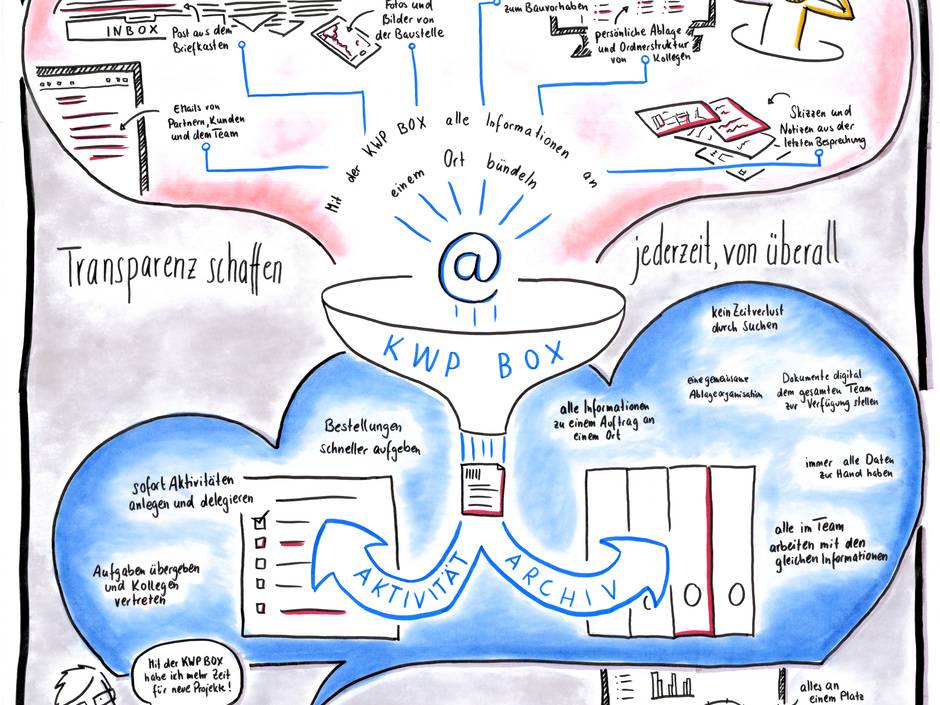 INBOX
Post aus dem
Briefkasten
Fotos und
Bilder von
der Baustelle
zum Bauvorhaben
persönliche Ablage
und Ordnerstruktur
von Kollegen
EMails von
Partnern, Kunden
und dem Team
Skizzen und
Notizen aus der
letzten Besprechung
Mit der KWP BOX alle Informationen an
einem Ort bündeln
Transparenz schaffen
jederzeit, von überall
@
KWP BOX
kein Zeitverlust
durch Suchen
eine gemeinsame
Ablageorganisation
Dokumente digital
dem gesamten Team
zur Verfügung stellen
Bestellungen
schneller aufgeben
alle Informationen
zu einem Auftrag an
einem Ort
immer alle Daten
zur Hand haben
sofort Aktivitäten
anlegen und delegieren
alle im Team
arbeiten mit den
gleichen Informationen
Aufgaben übergeben
und Kollegen
vertreten
AKTIVITÄT
ARCHIV
Mit der KWP BOX
habe ich mehr Zeit
für neue Projekte!
alles an
einem Platz